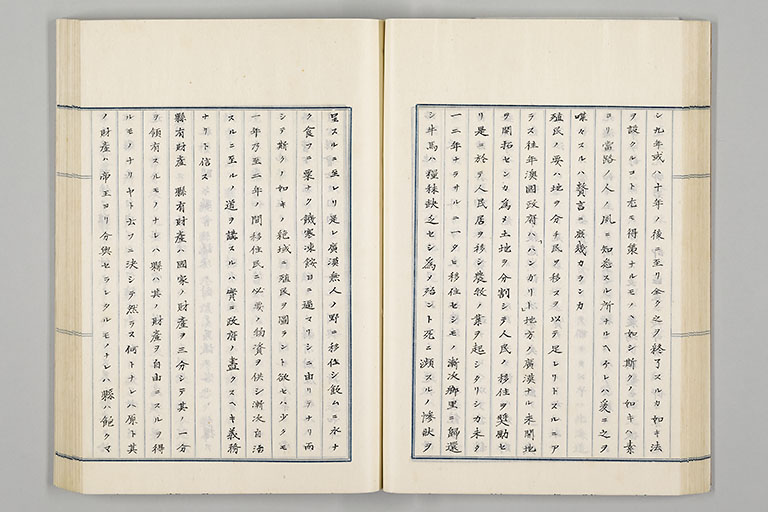 シ九年或ハ十年ノ後ニ至リ全ク之ヲ終了スルカ如キ法
ヲ設クルコト尤モ得策ナルモノヽ如シ斯クノ如キハ素
ヨリ當路ノ人ノ夙ニ知悉スル所ナルヘケレハ爰ニ之ヲ
喋々スルハ贅言ニ庶幾カランカ
殖民ノ要ハ地ヲ分チ民ヲ移スヲ以テ足レリトスルニア
ラス往年澳國政府ハハンガリー地方ノ廣漠ナル未開地
ヲ開拓センカ為メ土地ヲ分割シテ人民ノ移住ヲ奬勵セ
リ是ニ於テ人民居ヲ移シ農牧ノ業ヲ起シタリシカ未タ
一二年ナラサルニ一タヒ移住セシモノ漸次鄕里ニ歸還
シ牛馬ハ糧秣缺乏セシ為メ殆ント死ニ瀕スルノ慘狀ヲ
呈スルニ至レリ是レ廣漠無人ノ野ニ移住シ飲ムニ水ナ
ク食フニ粟ナク饑寒凍餒ヨニ逼マリシニ由リテナリ而
シテ斯クノ如キノ絶域ニ殖民ヲ圖ラント欲セハ少クモ
一年乃至二年ノ間移住民ニ必要ノ物資ヲ供シ漸次自治
スルニ至ルノ道ヲ講スルハ實ニ政府ノ盡クスヘキ義務
ナリト信ス
縣有財産 縣有財産ハ國家ノ財産ヲ三分シテ其ノ一分
ヲ領有スルモノナレハ縣ハ其ノ財産ヲ自由ニスルヲ得
ルモノナリヤト云フニ決シテ然ラス何トナレハ原ト其
ノ財産ハ帝王ヨリ分與セラレタルモノナレハ縣ハ飽クマ